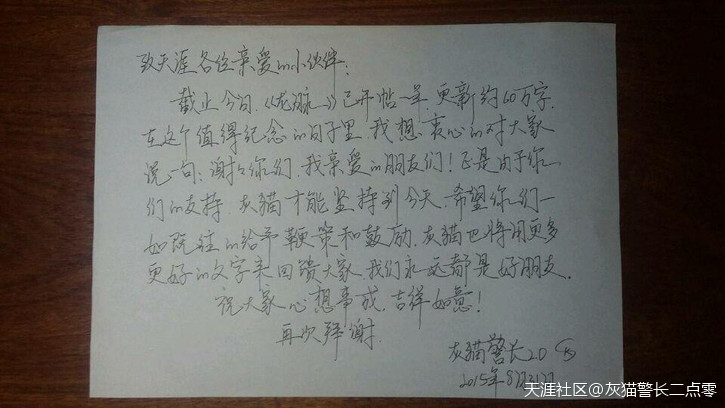 致天涯各位亲爱的小伙伴：
截止今日，《龙脉》已开帖一年，更新约60万字，
在这个值得纪念的日子里，我想衷心的对大家
说一句：谢谢你们，我亲爱的朋友们！正是由于你
们的支持，灰貓才能坚持到今天，希望你们一
如既往的给予鞭策和鼓励，灰貓也将用更多
更好的文字来回馈大家，我们永远都是好朋友。
祝大家心想事成，吉祥如意！
再次拜谢
灰貓警长2.0
2015年8月21日
天涯社区@灰猫警长二点零